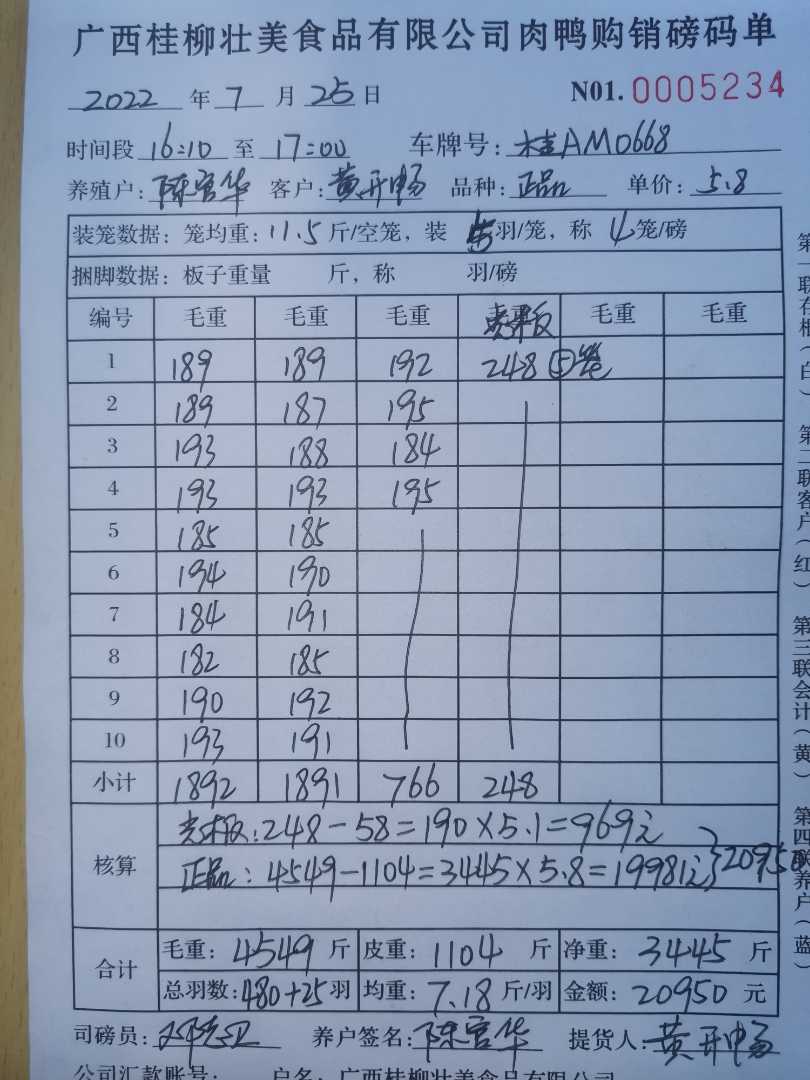 广西桂柳壮美食品有限公司肉鸭购销磅码单
2022 年 7 月 25 日 N01. 0005234
时间段 16:10 至 17:00 车牌号: 桂AM0668
养殖户: 陈官华 客户: 黄开畅 品种: 正品 单价: 5.8
装笼数据: 笼均重: 11.5 斤/空笼, 装 羽/笼, 称 4 笼/磅
捆脚数据: 板子重量 斤, 称 羽/磅
编号 毛重 毛重 毛重 毛重 毛重
1 189 189 192 248 ⑤笼
2 189 187 195
3 193 188 184
4 193 193 195
5 185 185
6 194 190
7 184 191
8 182 185
9 190 192
10 193 191
小计 1892 1891 766 248
核算
248-58=190×5.1=969元
正品: 4549-1104=3445×5.8=19981元 20950
合计 毛重: 4549 斤 皮重: 1104 斤 净重: 3445 斤
总羽数: 480+25 羽 均重: 7.18 斤/羽 金额: 20950 元
司磅员: 养户签名: 陈官华 提货人: 黄开畅
公司汇款账号: 户名: 广西桂柳壮美食品有限公司
第一联存根(白) 第二联客户(红) 第三联会计(黄) 第四联养户(蓝)